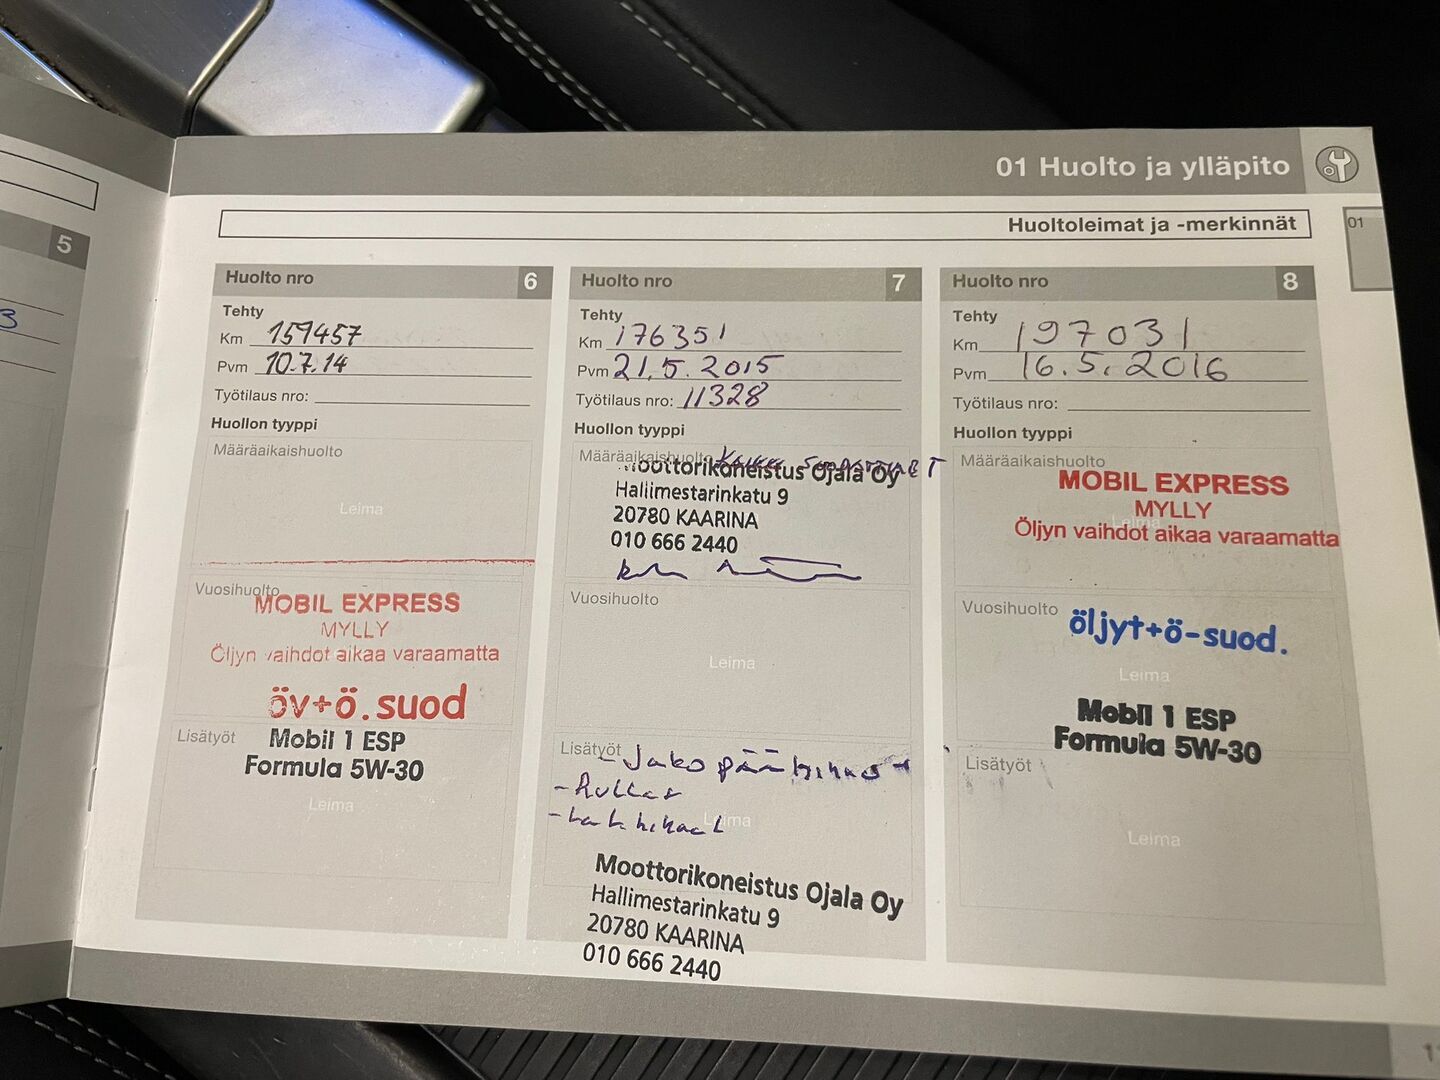 01 Huolto ja ylläpito
Huoltoleimat ja -merkinnät
01
5
3
Huolto nro 6
Tehty
Km 159457
Pvm 10.7.14
Työtilaus nro:
Huollon tyyppi
Määräaikaishuolto
Leima
Vuosihuolto
MOBIL EXPRESS
MYLLY
Öljyn vaihdot aikaa varaamatta
öv+ö.suod
Lisätyöt
Mobil 1 ESP
Formula 5W-30
Leima
Huolto nro 7
Tehty
Km 176351
Pvm 21.5.2015
Työtilaus nro: 11328
Huollon tyyppi
Määräaikaishuolto
Moottorikoneistus Ojala Oy
Hallimestarinkatu 9
20780 KAARINA
010 666 2440
Vuosihuolto
Leima
Lisätyöt - Jakopäähihnat
- Rullat
Leima
Moottorikoneistus Ojala Oy
Hallimestarinkatu 9
20780 KAARINA
010 666 2440
Huolto nro 8
Tehty
Km 197031
Pvm 16.5.2016
Työtilaus nro:
Huollon tyyppi
Määräaikaishuolto
MOBIL EXPRESS
MYLLY
Leima
Öljyn vaihdot aikaa varaamatta
Vuosihuolto
öljyt+ö-suod.
Leima
Mobil 1 ESP
Formula 5W-30
Lisätyöt
Leima